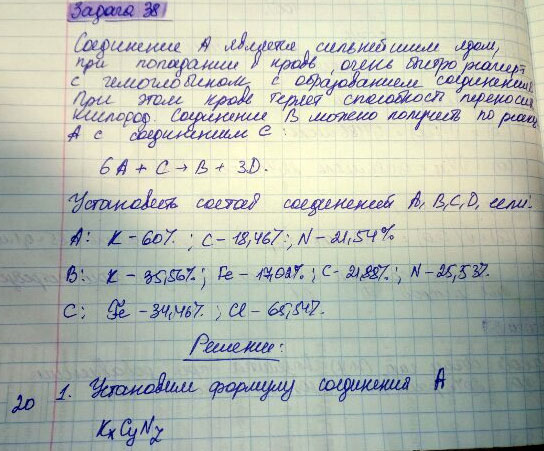 Задача 38
Соединение А является сильнейшим ядом,
при попадании в кровь очень быстро реагирует
с гемоглобином с образованием соединение
При этом кровь теряет способность переносить
кислород. Соединение В можено получить по реакц
А с соединением С:
6А + С → В + 3D.
Установить состав соединений А, В, С, D, если:
А: К - 60%.; С - 18,46%.; N - 21,54%
В: К - 35,56%.; Fe - 17,02%.; С - 21,88%.; N - 25,53%.
С: Fe - 34,46%.; Cl - 65,54%.
Решение:
20 1. Установим формулу соединения А
KxCyNz